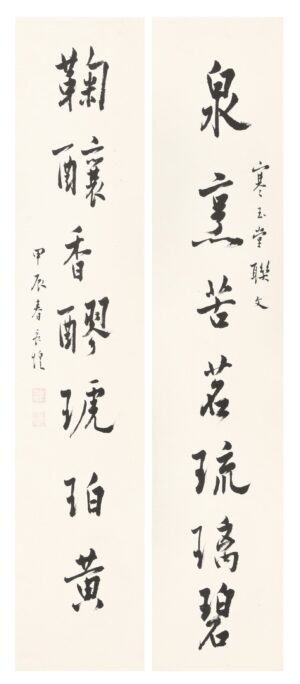 寒玉堂聯文
泉烹苦茗琉璃碧
鞠釀香醪琥珀黃
甲辰春